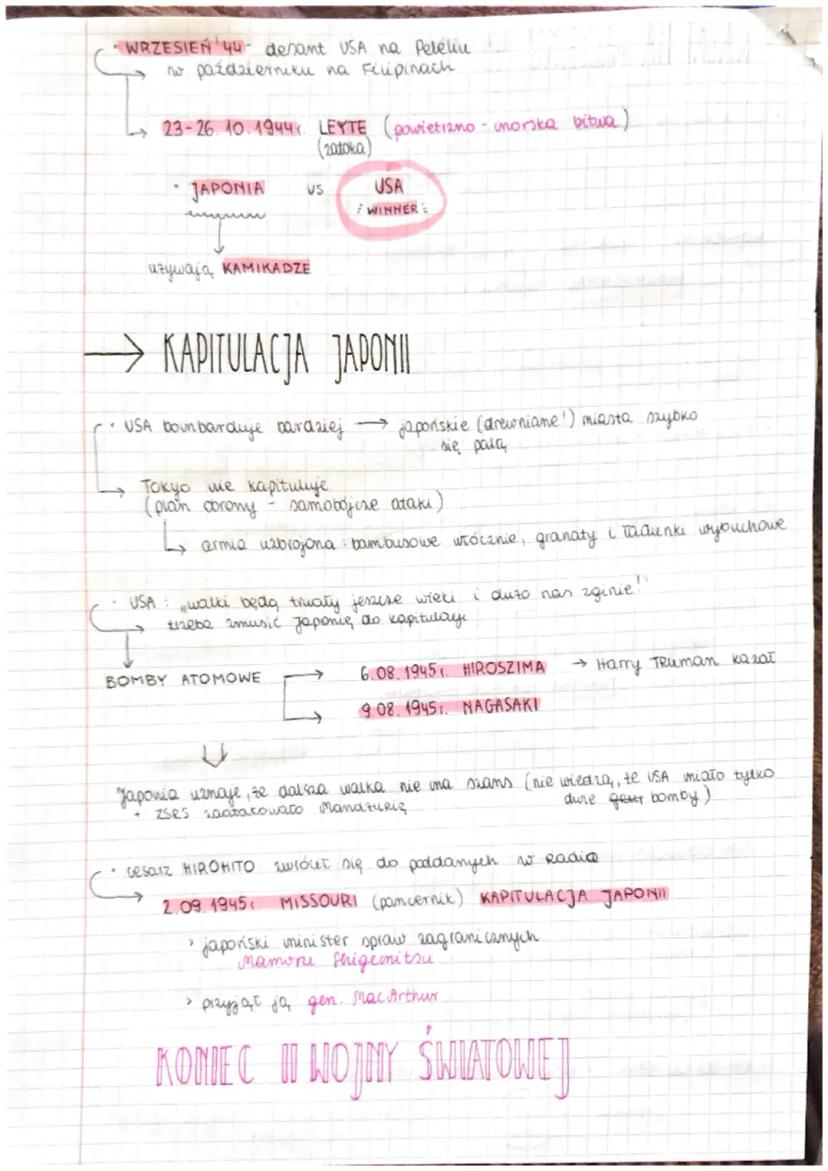 · WRZESIEŃ '44 - desant USA na Peleliu
w październiku na Filipinach
23-26.10.1944r. LEYTE (powietrzno - morska bitwa)
(zatoka)
· JAPONIA vs USA
WINNER
używają KAMIKADZE
→ KAPITULACJA JAPONII
· USA bombarduje bardziej → japońskie (drewniane!) miasta szybko
się palą
Tokyo nie kapituluje
(plan obrony - samobójcze ataki)
armia uzbrojona: bambusowe włócznie, granaty i ładunki wybuchowe
· USA: „walki będą trwały jeszcze wieki i dużo nas zginie!"
trzeba zmusić Japonię do kapitulacji
BOMBY ATOMOWE → 6.08.1945r. HIROSZIMA → Harry Truman kazał
→ 9.08.1945r. NAGASAKI
Japonia uznaje, że dalsza walka nie ma szans (nie wiedzą, że USA miało tylko
+ ZSRS zaatakowało Mandżurię dwie bomby)
· cesarz HIROHITO zwrócił się do poddanych w radio
2.09.1945r. MISSOURI (pancernik) KAPITULACJA JAPONII
> japoński minister spraw zagranicznych
Mamoru Shigemitsu
> przyjął ją gen. MacArthur
KONIEC II WOJNY ŚWIATOWEJ